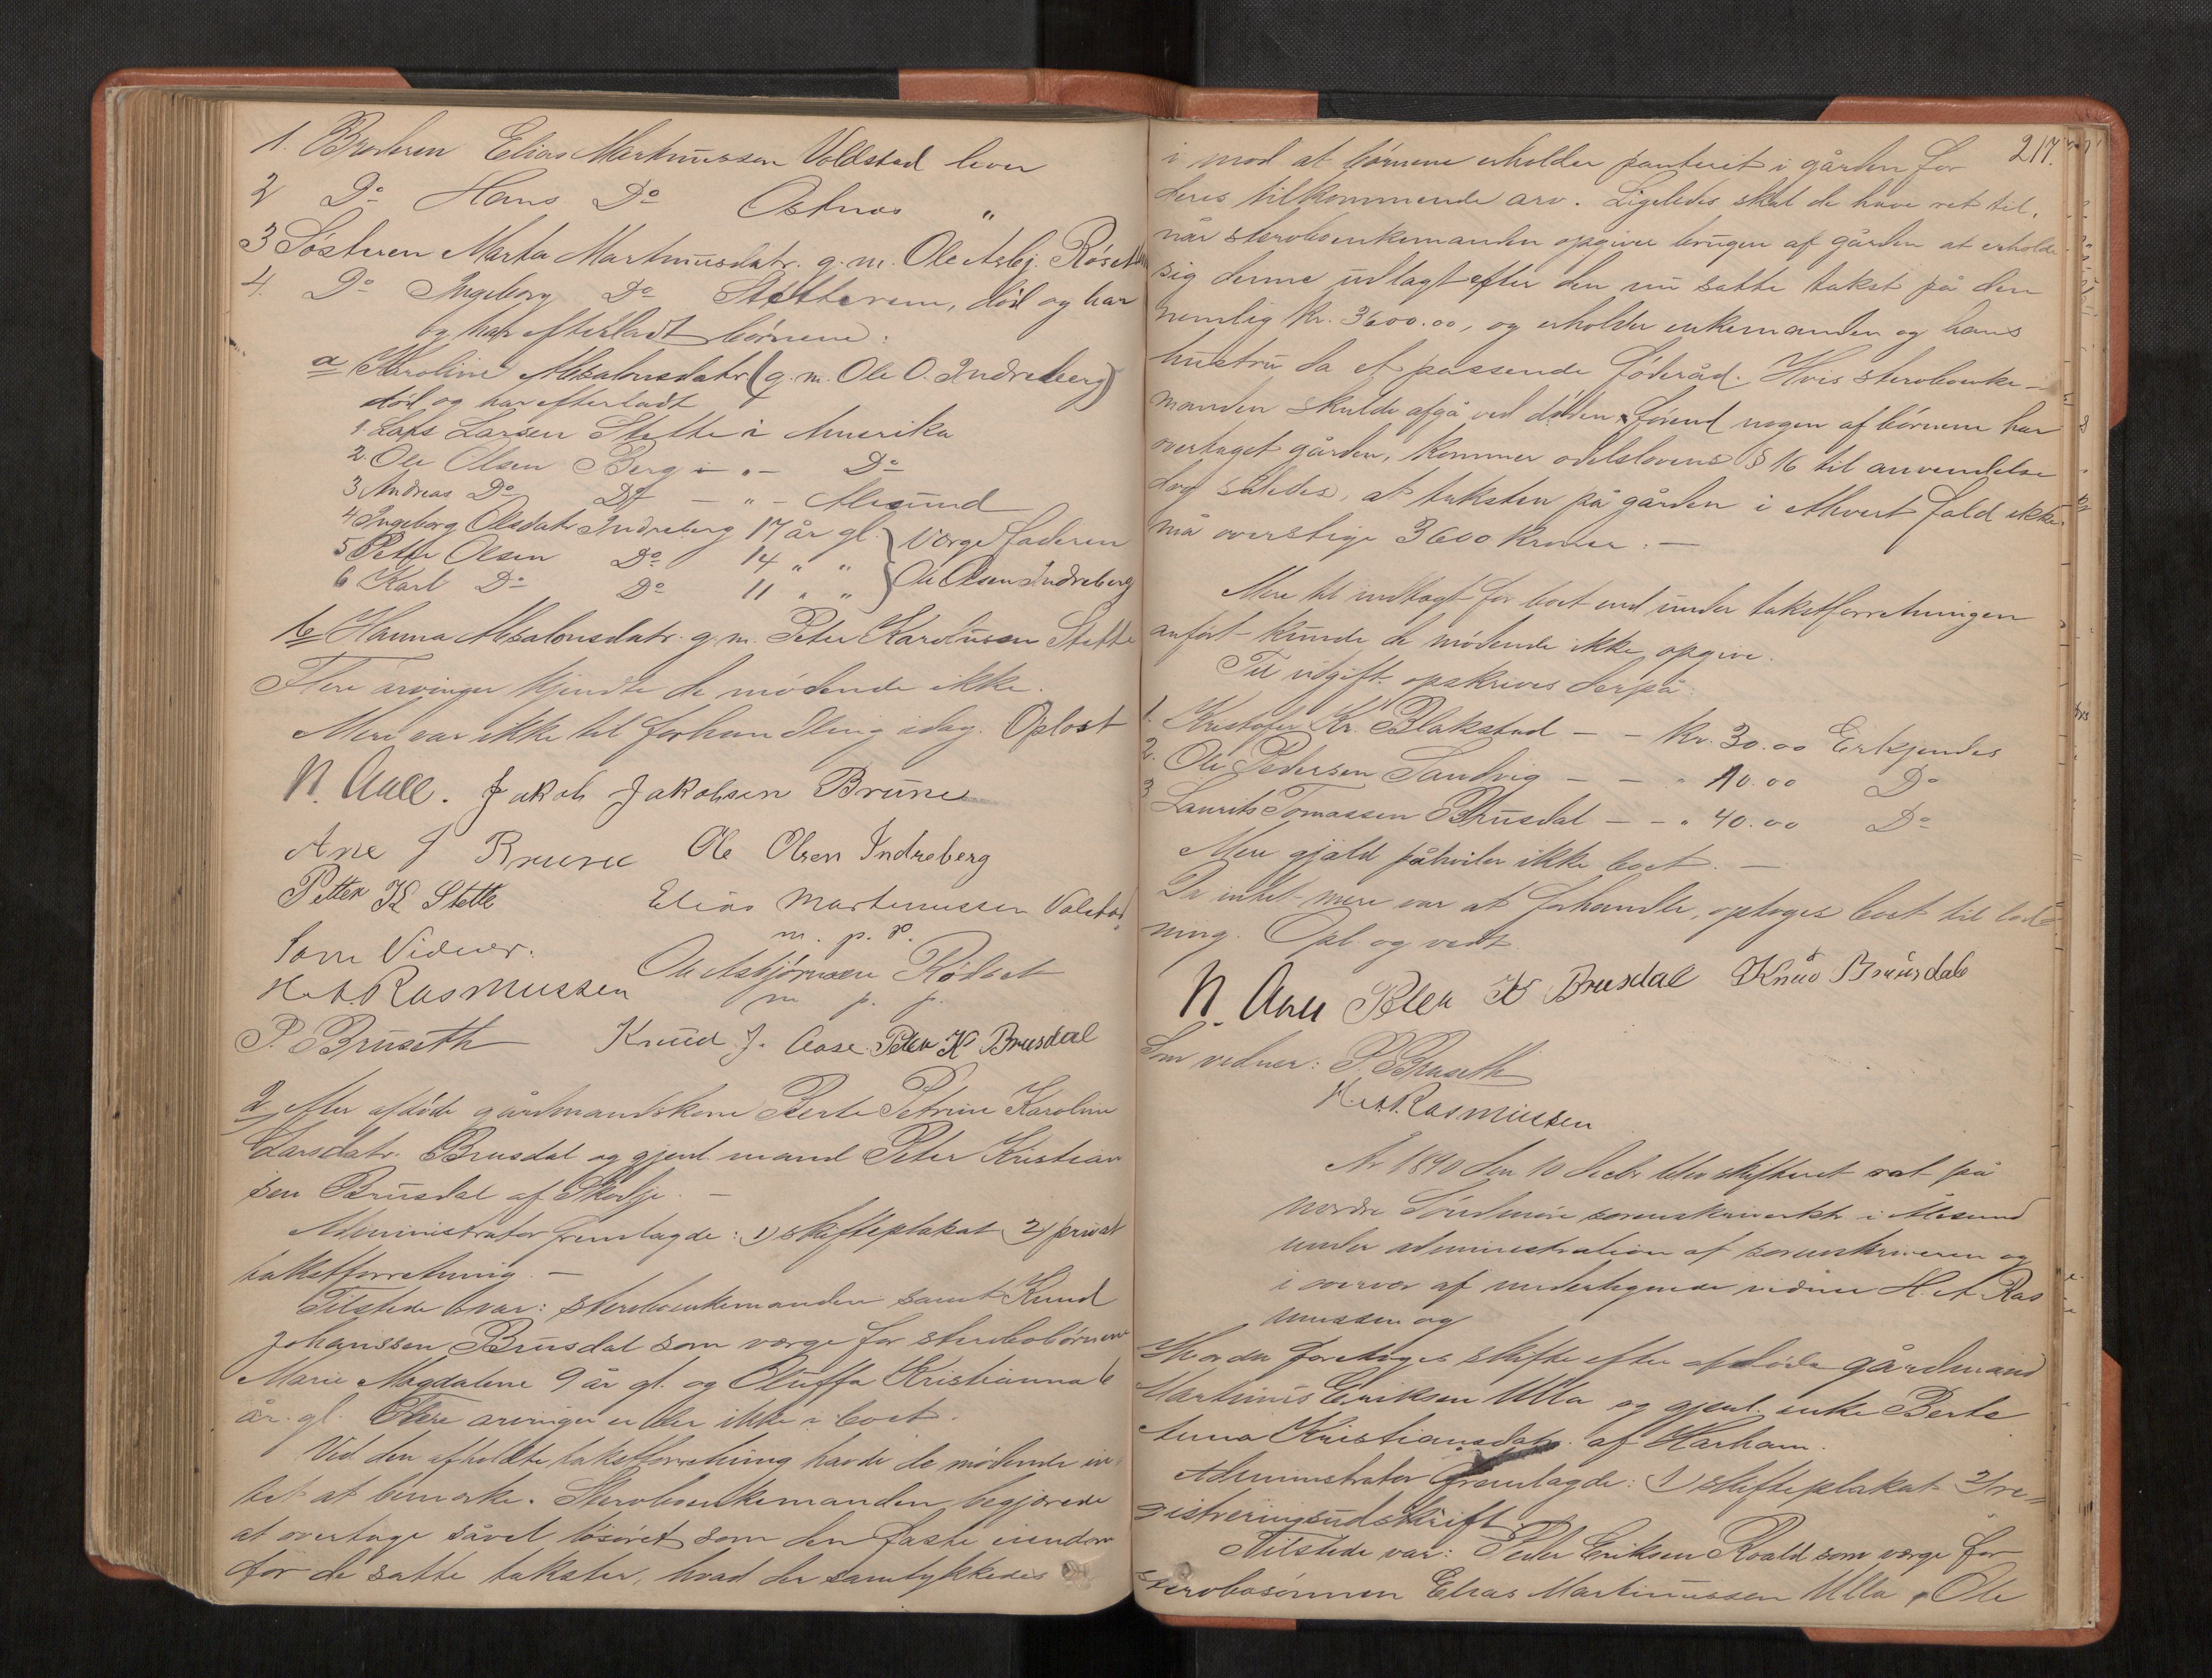 1. Broderen Elias Martinussen Voldstad lever
2 Do Hans Do Ostnes "
3 Søsteren Marta Martinusdatr. g. m. Ole Asbj. Røset
4. Do Ingeborg Do Stette, død og har
og har efterladt børnene:
a Karoline Absalonsdatr (g. m. Ole O. Indreberg)
død og har efterladt
1. Lars Larsen Stette i Amerika
2. Ole Olsen Berg i - " - Do
3 Andreas Do Do - " - Alesund
4 Ingeborg Olsdatr Indreberg 17 år gl. } Værge faderen
5 Petter Olsen Do 14 " " } Ole Olsen Indreberg
6 Karl Do Do 11 " "
b Hanna Absalonsdatr. g. m. Peter Karolussen Stette
Flere arvinger kjendte de mødende ikke.
Mere var ikke til forhandling idag. Oplæst
N. Aall. Jakob Jakobsen Brune
Ane J Brune Ole Olsen Indreberg
Petter K Stette Elias Martinussen Valstad
m. p. p.
Som Vidner. Ole Asbjørnsen Rødset
H. A. Rasmussen m. p. p.
P. Bruseth Knud J. Aase Peter K Brusdal
2, efter afdøde gårdmandskone Berte Petrine Karoline
Larsdatr. Brusdal og gjenl. mand Peter Kristian
sen Brusdal af Skodje. -
Administrator fremlagde: 1) skifteplakat 2) privat
takstforretning. -
Tilstede var: sterboenkemanden samt Knud
Johanssen Brusdal som værge for sterbobørnene
Marie Magdalene 9 år gl. og Oluffa Kristianna 6
år. gl. Flere arvinger er der ikke i boet.
Ved den afholdte takstforretning havde de mødende in
tet at bemærke. Sterboenkemanden begjærede
at overtage såvel løsøret som den faste eiendom
for de satte takster, hvad der samtykkedes
217.
i mod at børnene erholder panteret i gården for
deres tilkommende arv. Ligeledes skal de have ret til,
når sterboenkemanden opgiver brugen af gården at erholde
sig denne udlagt efter den nu satte takst på den
nemlig Kr. 3600.00, og erholder enkemanden og hans
hustru da et passende føderåd. Hvis sterboenke-
manden skulde afgå ved døden førend nogen af børnene har
overtaget gården, kommer odelslovens § 16 til anvendelse
dog således, at taksten på gården i ethvert fald ikke
må overstige 3600 kroner. -
Mere til indtægt for boet end under takstforretningen
anført kunde de mødende ikke opgive.
Til udgift opskrives derpå:
1. Kristofer Kr. Blakstad - - Kr. 30.00 Erkjendes
2. Ole Pedersen Sandvig - - " 10.00 Do
3 Laurits Tomassen Brusdal - - " 40.00 Do
Mere gjæld påhviler ikke boet. -
Da intet mere var at forhandle, optoges boet til lod
ning. Opl. og vedt.
N. Aall Peter K Brusdal Knud Bruusdale
Som vidner: P. Bruseth
H. A. Rasmussen
År 1890 den 10 Decbr blev skifteret sat på
nordre Søndmøre sorenskriverktr. i Ålesund
under administration af sorenskriveren og
i overvær af undertegnede vidner H. A. Ras
mussen og
Hvorda foretoges skifte efter afdøde gårdmand
Martinus Eriksen Ulla og gjenl. enke Berte
Anna Kristiansdatr. af Harham.
Administrator fremlagde: 1) skifteplakat 2) re=
gistreringsudskrift.
Tilstede var: Peder Eriksen Roald som værge for
sterbosønnen Elias Martinussen Ulla, Ole